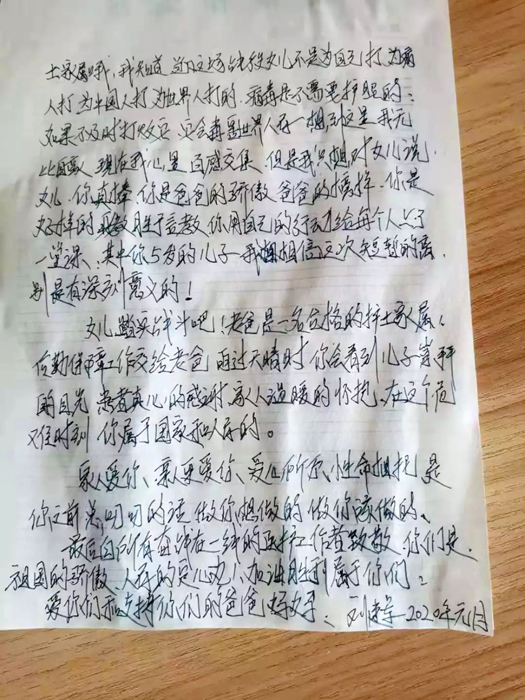 士家属哦，我知道这场战役女儿不是为自己打，为病
人打为中国人打，为世界人打的，病毒是不需要护照的：
如果不及时打败它，它会毒害世界人民一想到这里我无
比 现在我心里百感交集，但是我只想对女儿说，
女儿，你真棒，你是爸爸的骄傲，爸爸的榜样，你是
好样的 胜于言教，你用自己的行动给每个人上了
一堂课、其中你5岁的儿子，我相信这次短暂的离
别是有深刻意义的！
女儿踏实战斗吧！老爸是一名合格的护士家属，
后勤保障工作交给老爸，雨过天晴时你会看到儿子崇拜
的目光，患者真心的感谢，家人温暖的怀抱、在这个危
难时刻 你属于国家和人民的。
家人爱你、 更爱你、爱 性命相托 是
你 的 做你想做的 做你该做的、
最后向所有奋战在一线的 工作者致敬，你们是
祖国的骄傲 人民的 胜利属于你们：
爱你们和支持你们的爸爸 2020年元月